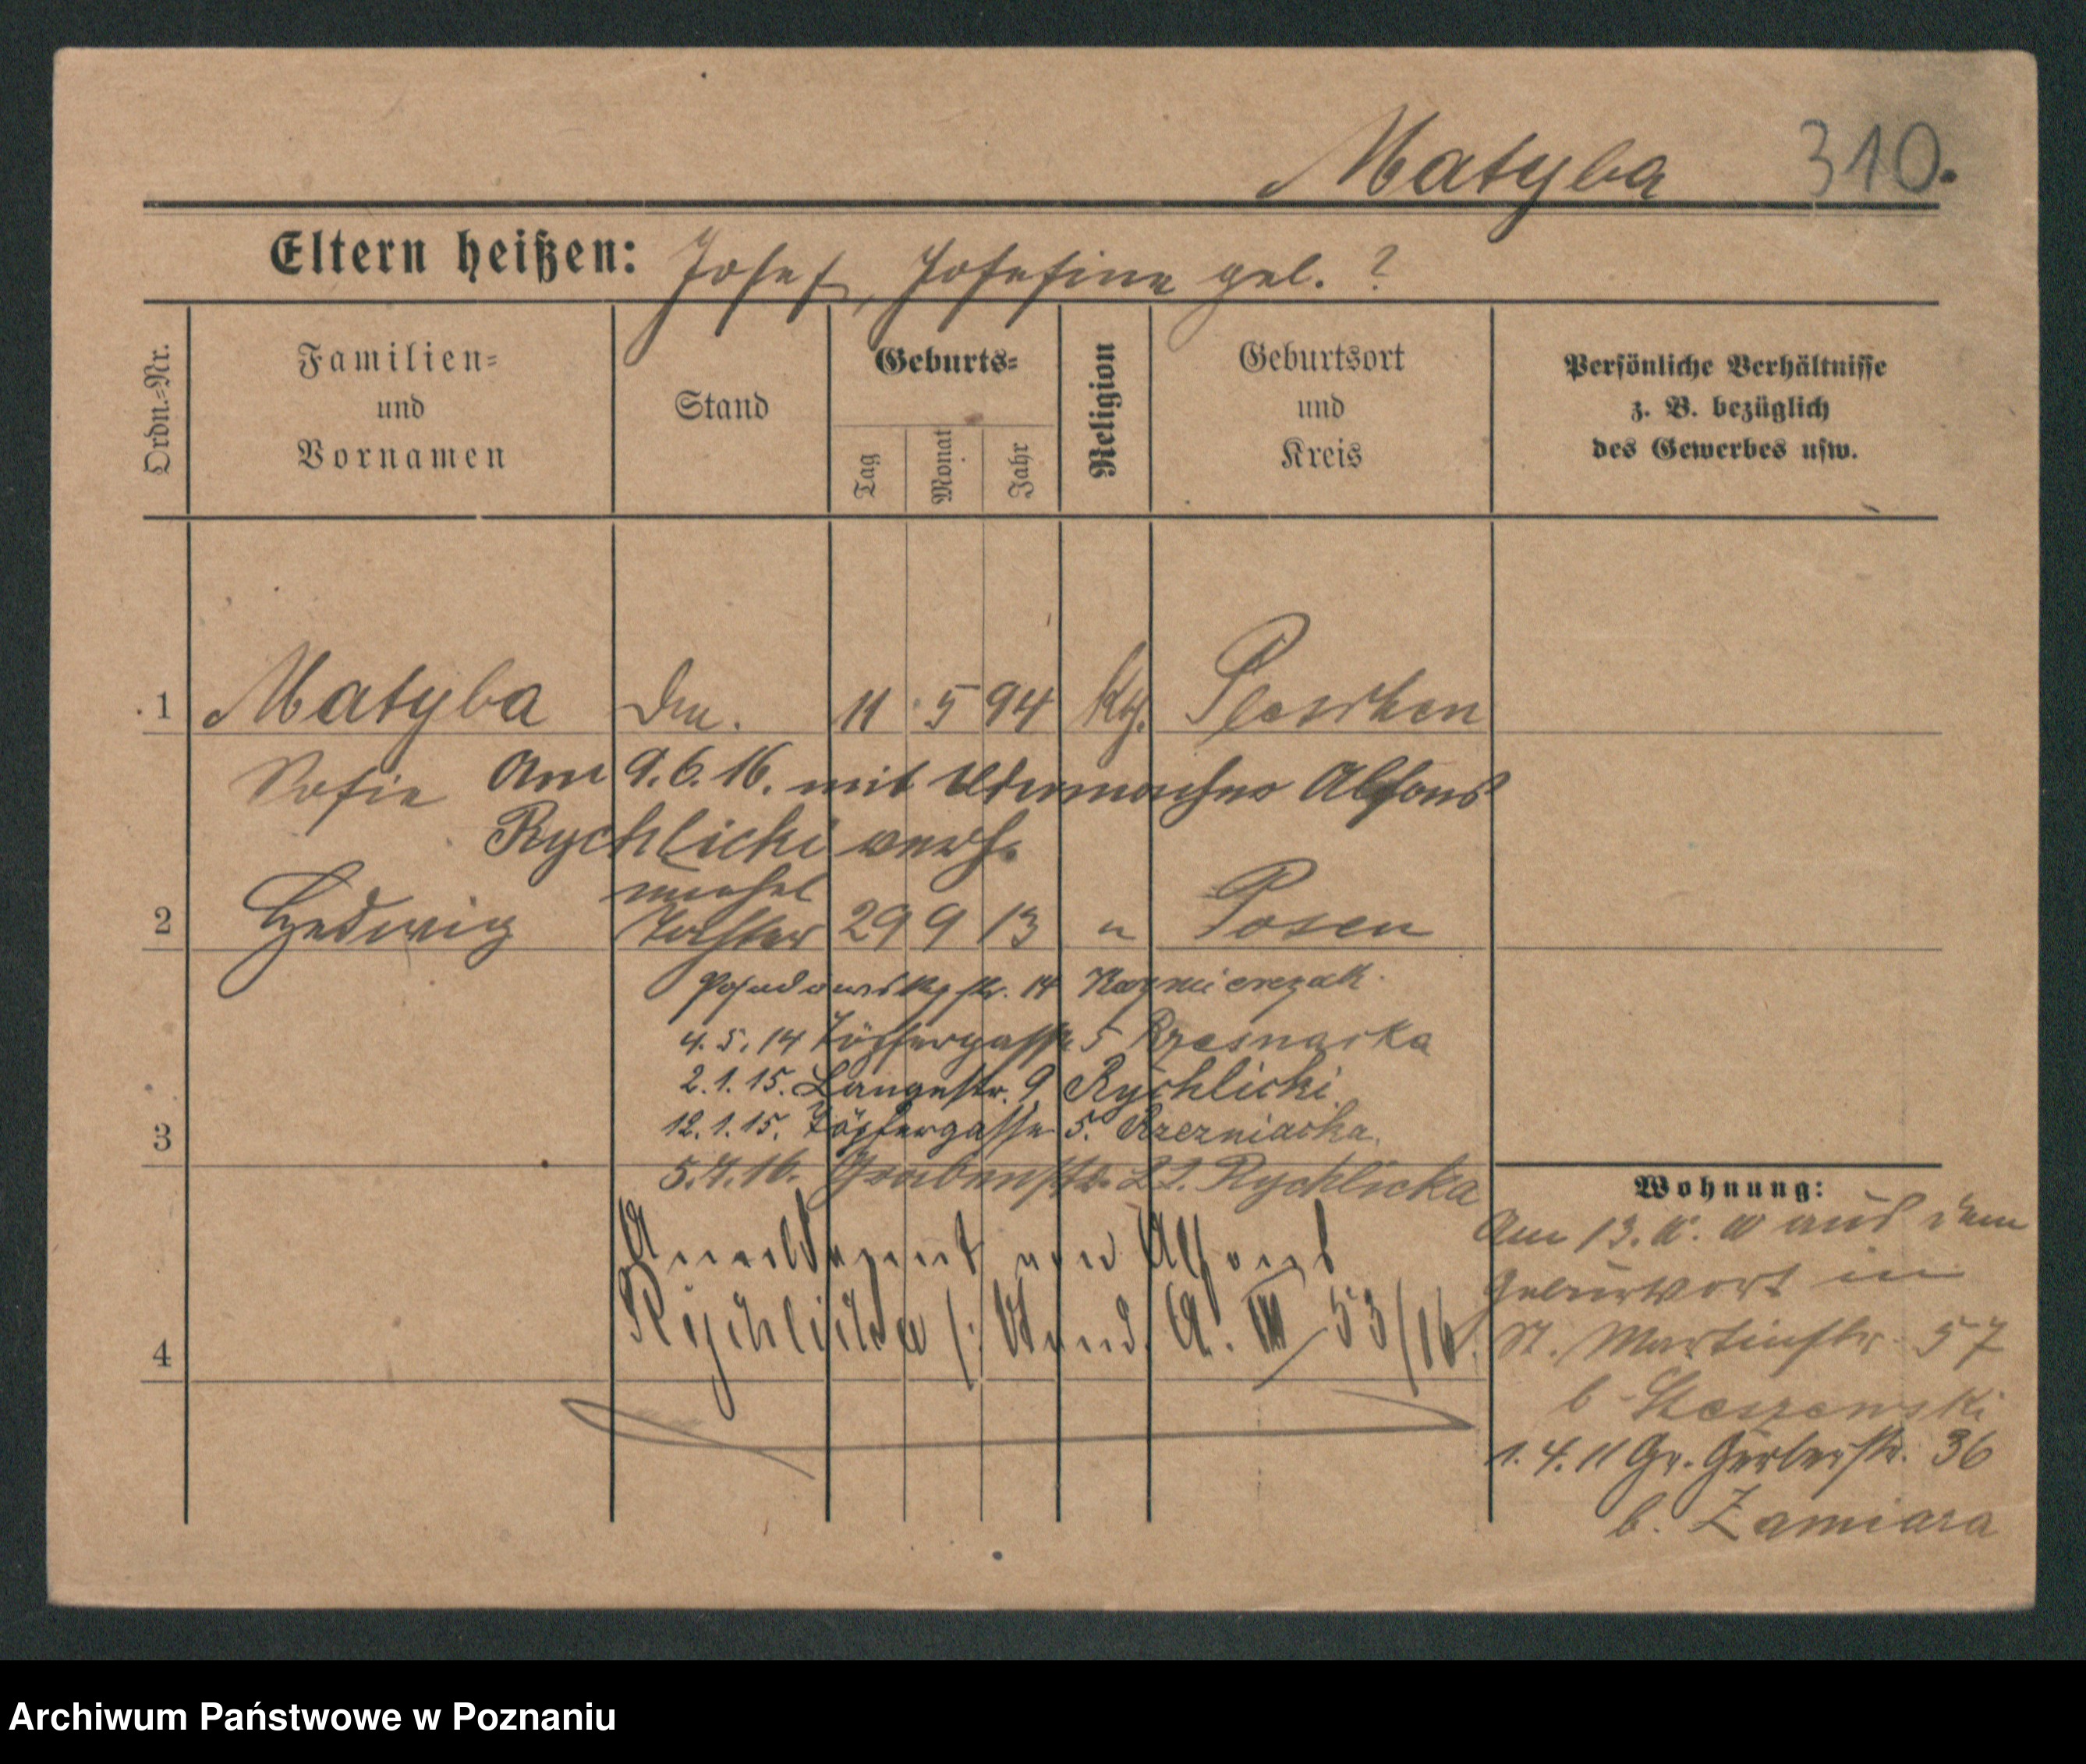 Matyba 310.
Eltern heißen: Josef, Josefine geb. ?
Ordn.=Nr.
Familien=
und
Vornamen
Stand
Geburts=
Tag
Monat
Jahr
Religion
Geburtsort
und
Kreis
Persönliche Verhältnisse
z. B. bezüglich
des Gewerbes usw.
1 Matyba 11 5 94 kth. Pleschen
Sofie Am 9.6.16. mit Uhrmacher Alfons
Rychlicki verh.
unehel
2 Hedwig Tochter 29 9 13 " Posen
Posadowskystr. 14 Kazmierczak.
4.5.14 Töpfergasse 5
2.1.15. Langestr. 9 Rychlicki.
12.1.15. Töpfergasse 5.
3
5.7.16. Grabenstr. Rychlicka
von Alfons
4
Wohnung:
Am 13. aus dem
Geburtsort in
St. Martinstr. 57
b
1.4.11 Gr. Gerberstr. 36
b. Zamiara
Archiwum Państwowe w Poznaniu